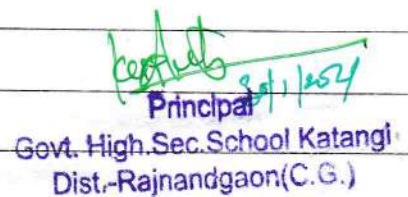 Principal
Govt. High.Sec.School Katangi
Dist.-Rajnandgaon(C.G.)